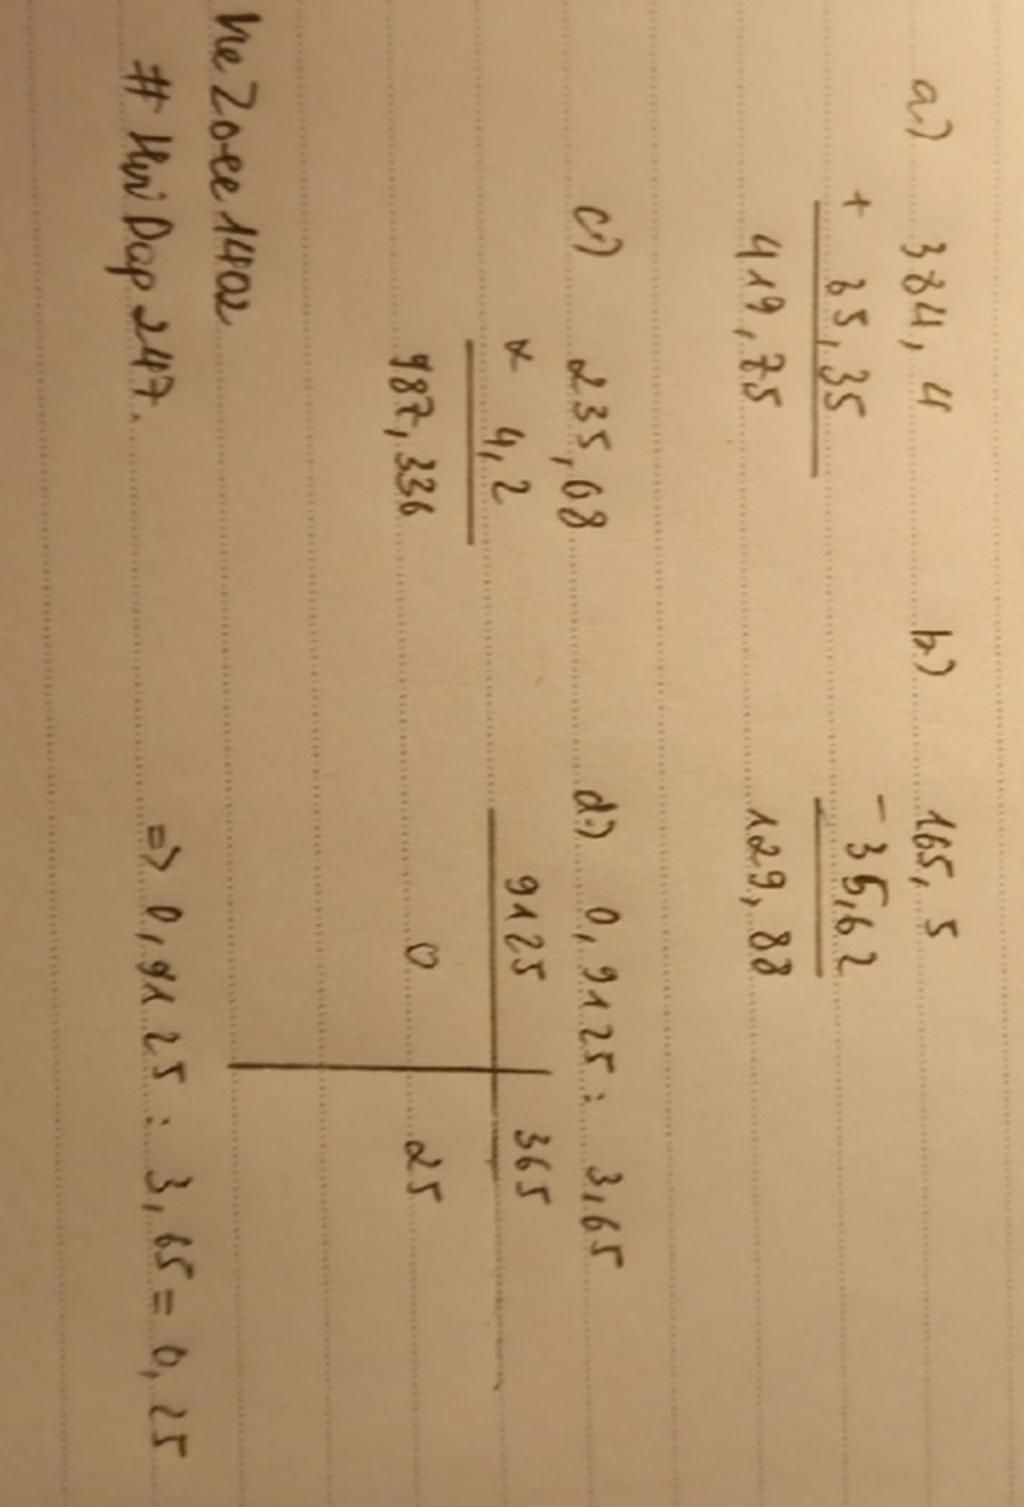 a) 384,4
+ 35,35
419,75
b) 165,5
- 35,62
129,88
c) 235,08
x 4,2
987,336
d) 0,9125 : 3,65
9125 365
0 25
=> 0,9125 : 3,65 = 0,25
# HuiDap247.